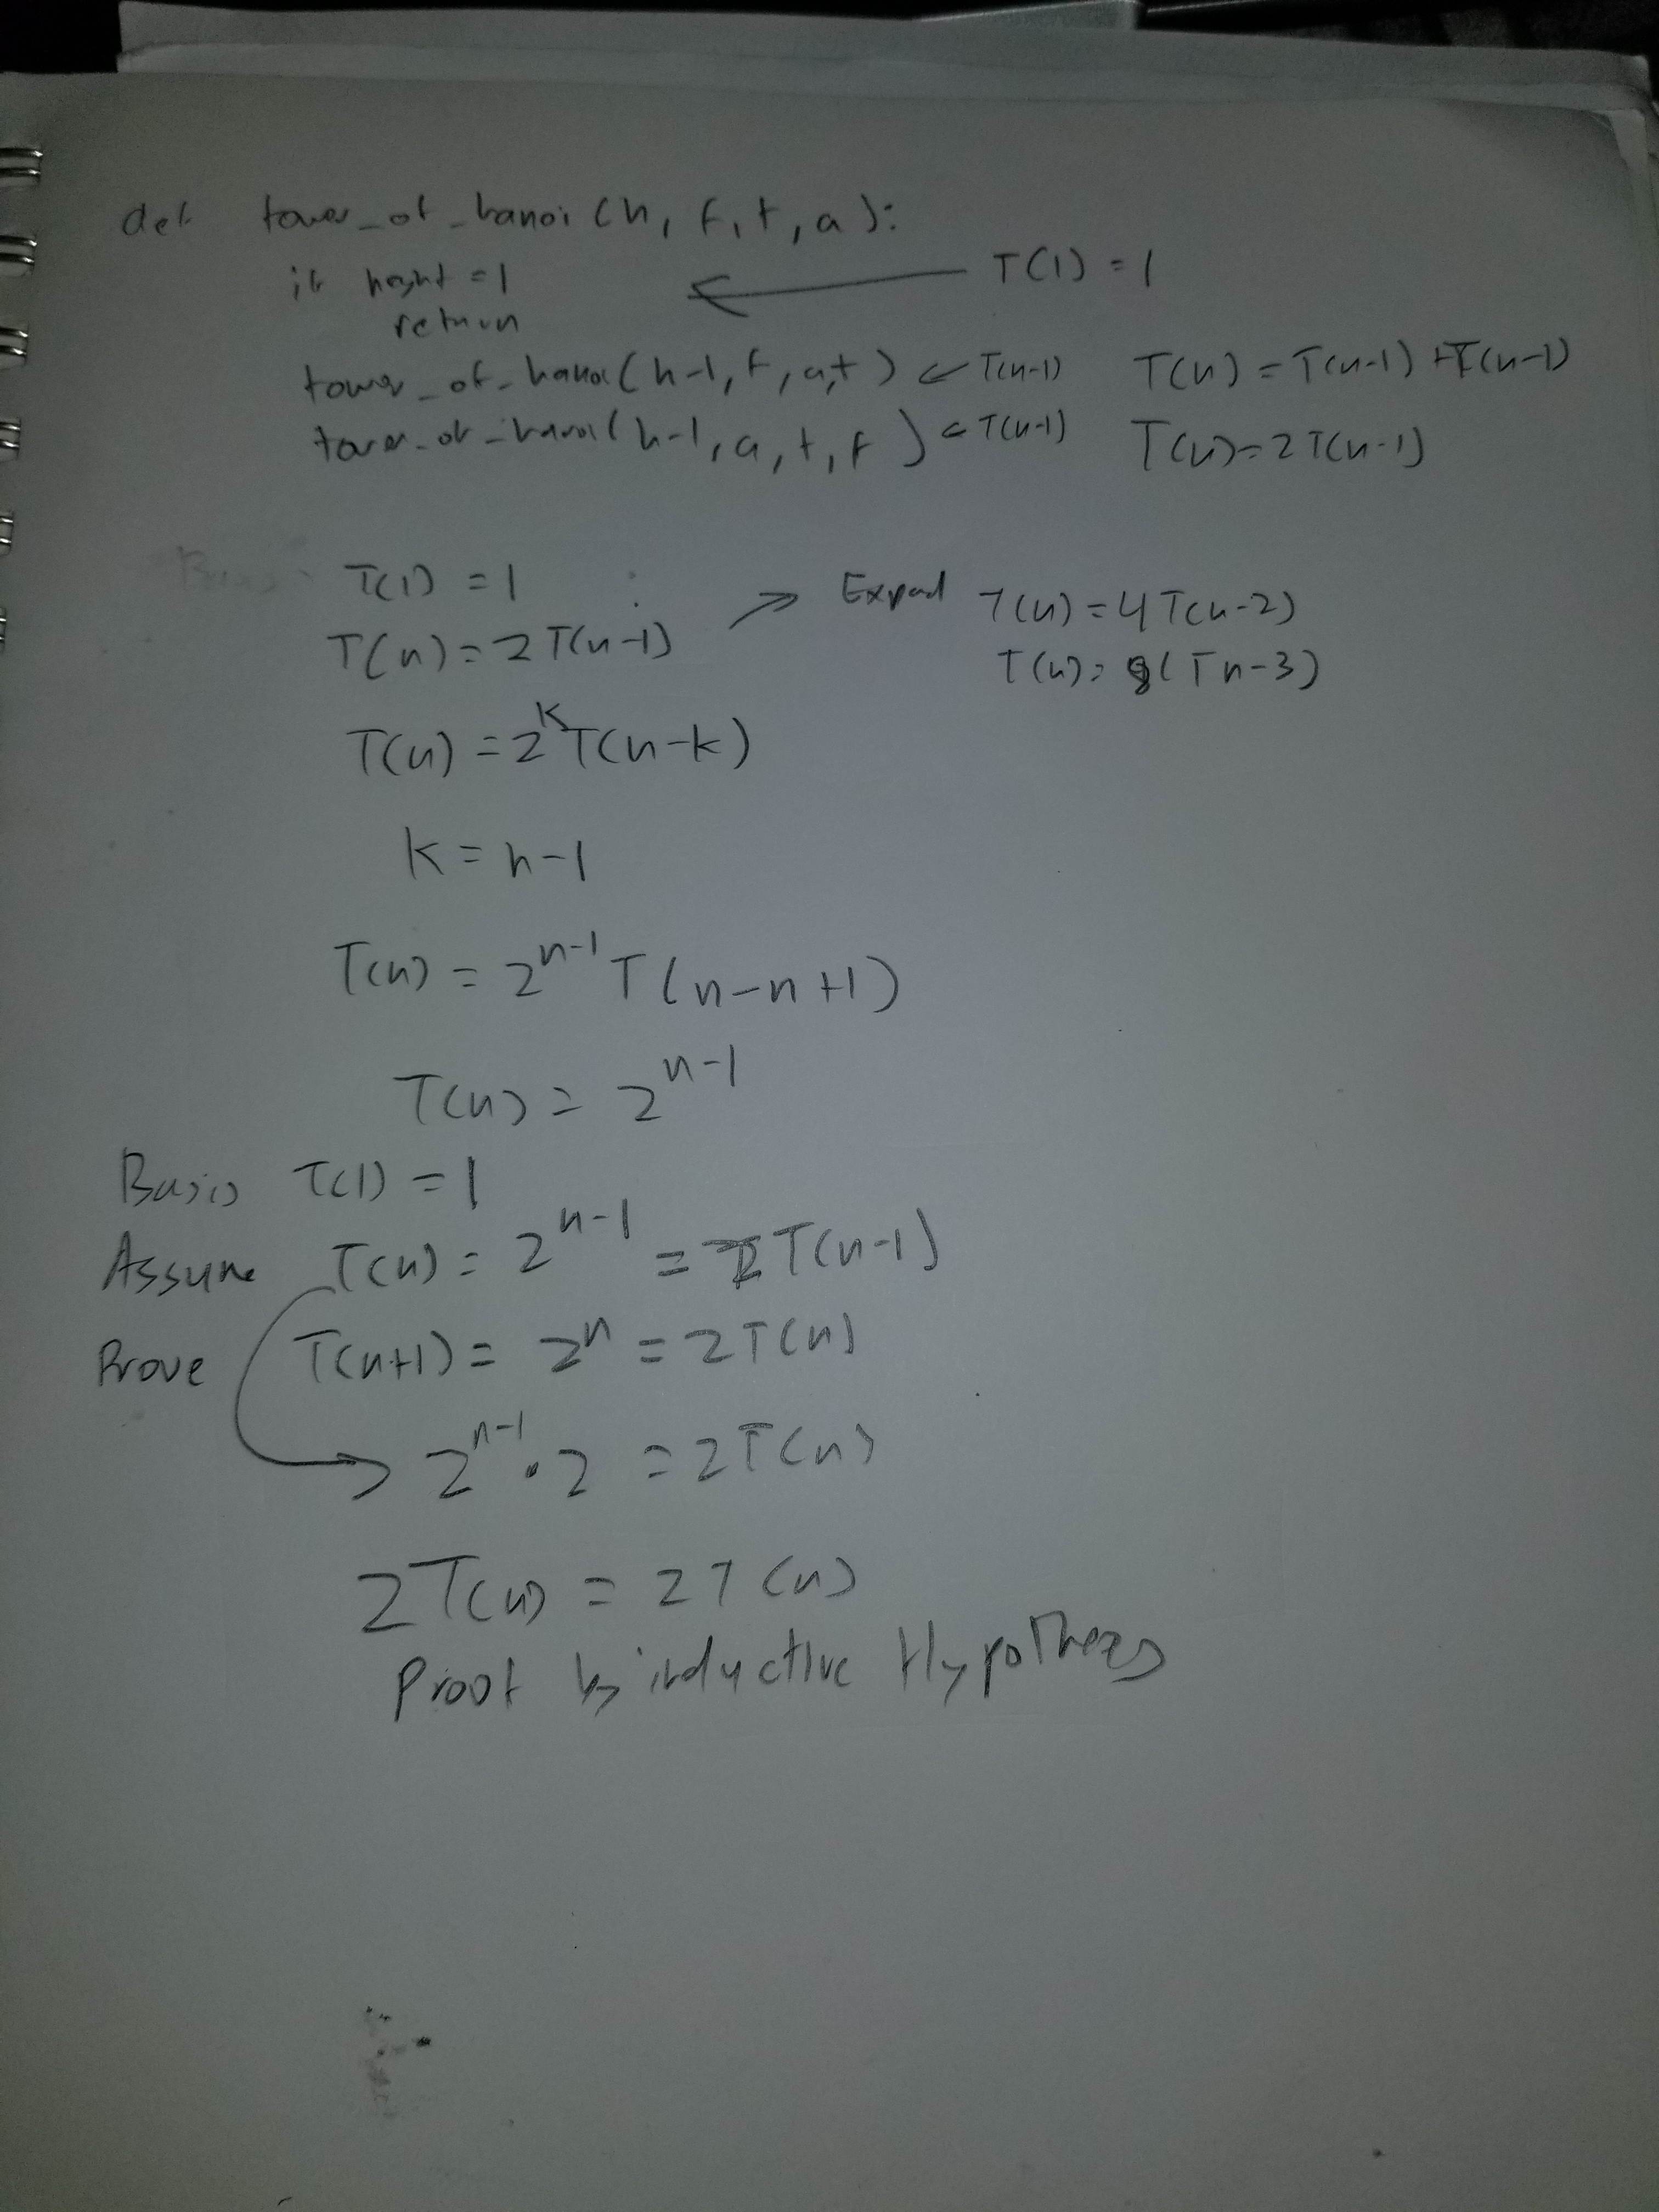 def tower_of_hanoi (h, f, t, a):
if height = 1
return
T(1) = 1
tower_of_hanoi (h-1, f, a, t) ← T(n-1)
T(n) = T(n-1) + T(n-1)
tower_of_hanoi (h-1, a, t, f) ← T(n-1)
T(n) = 2T(n-1)
T(1) = 1
T(n) = 2T(n-1)
Expand T(n) = 4T(n-2)
T(n) = 8(Tn-3)
T(n) = 2^k T(n-k)
k = n-1
T(n) = 2^{n-1} T(n-n+1)
T(n) = 2^{n-1}
Basis T(1) = 1
Assume T(n) = 2^{n-1} = 2T(n-1)
Prove T(n+1) = 2^n = 2T(n)
→ 2^{n-1} · 2 = 2T(n)
2T(n) = 2T(n)
Proof by inductive Hypothesis